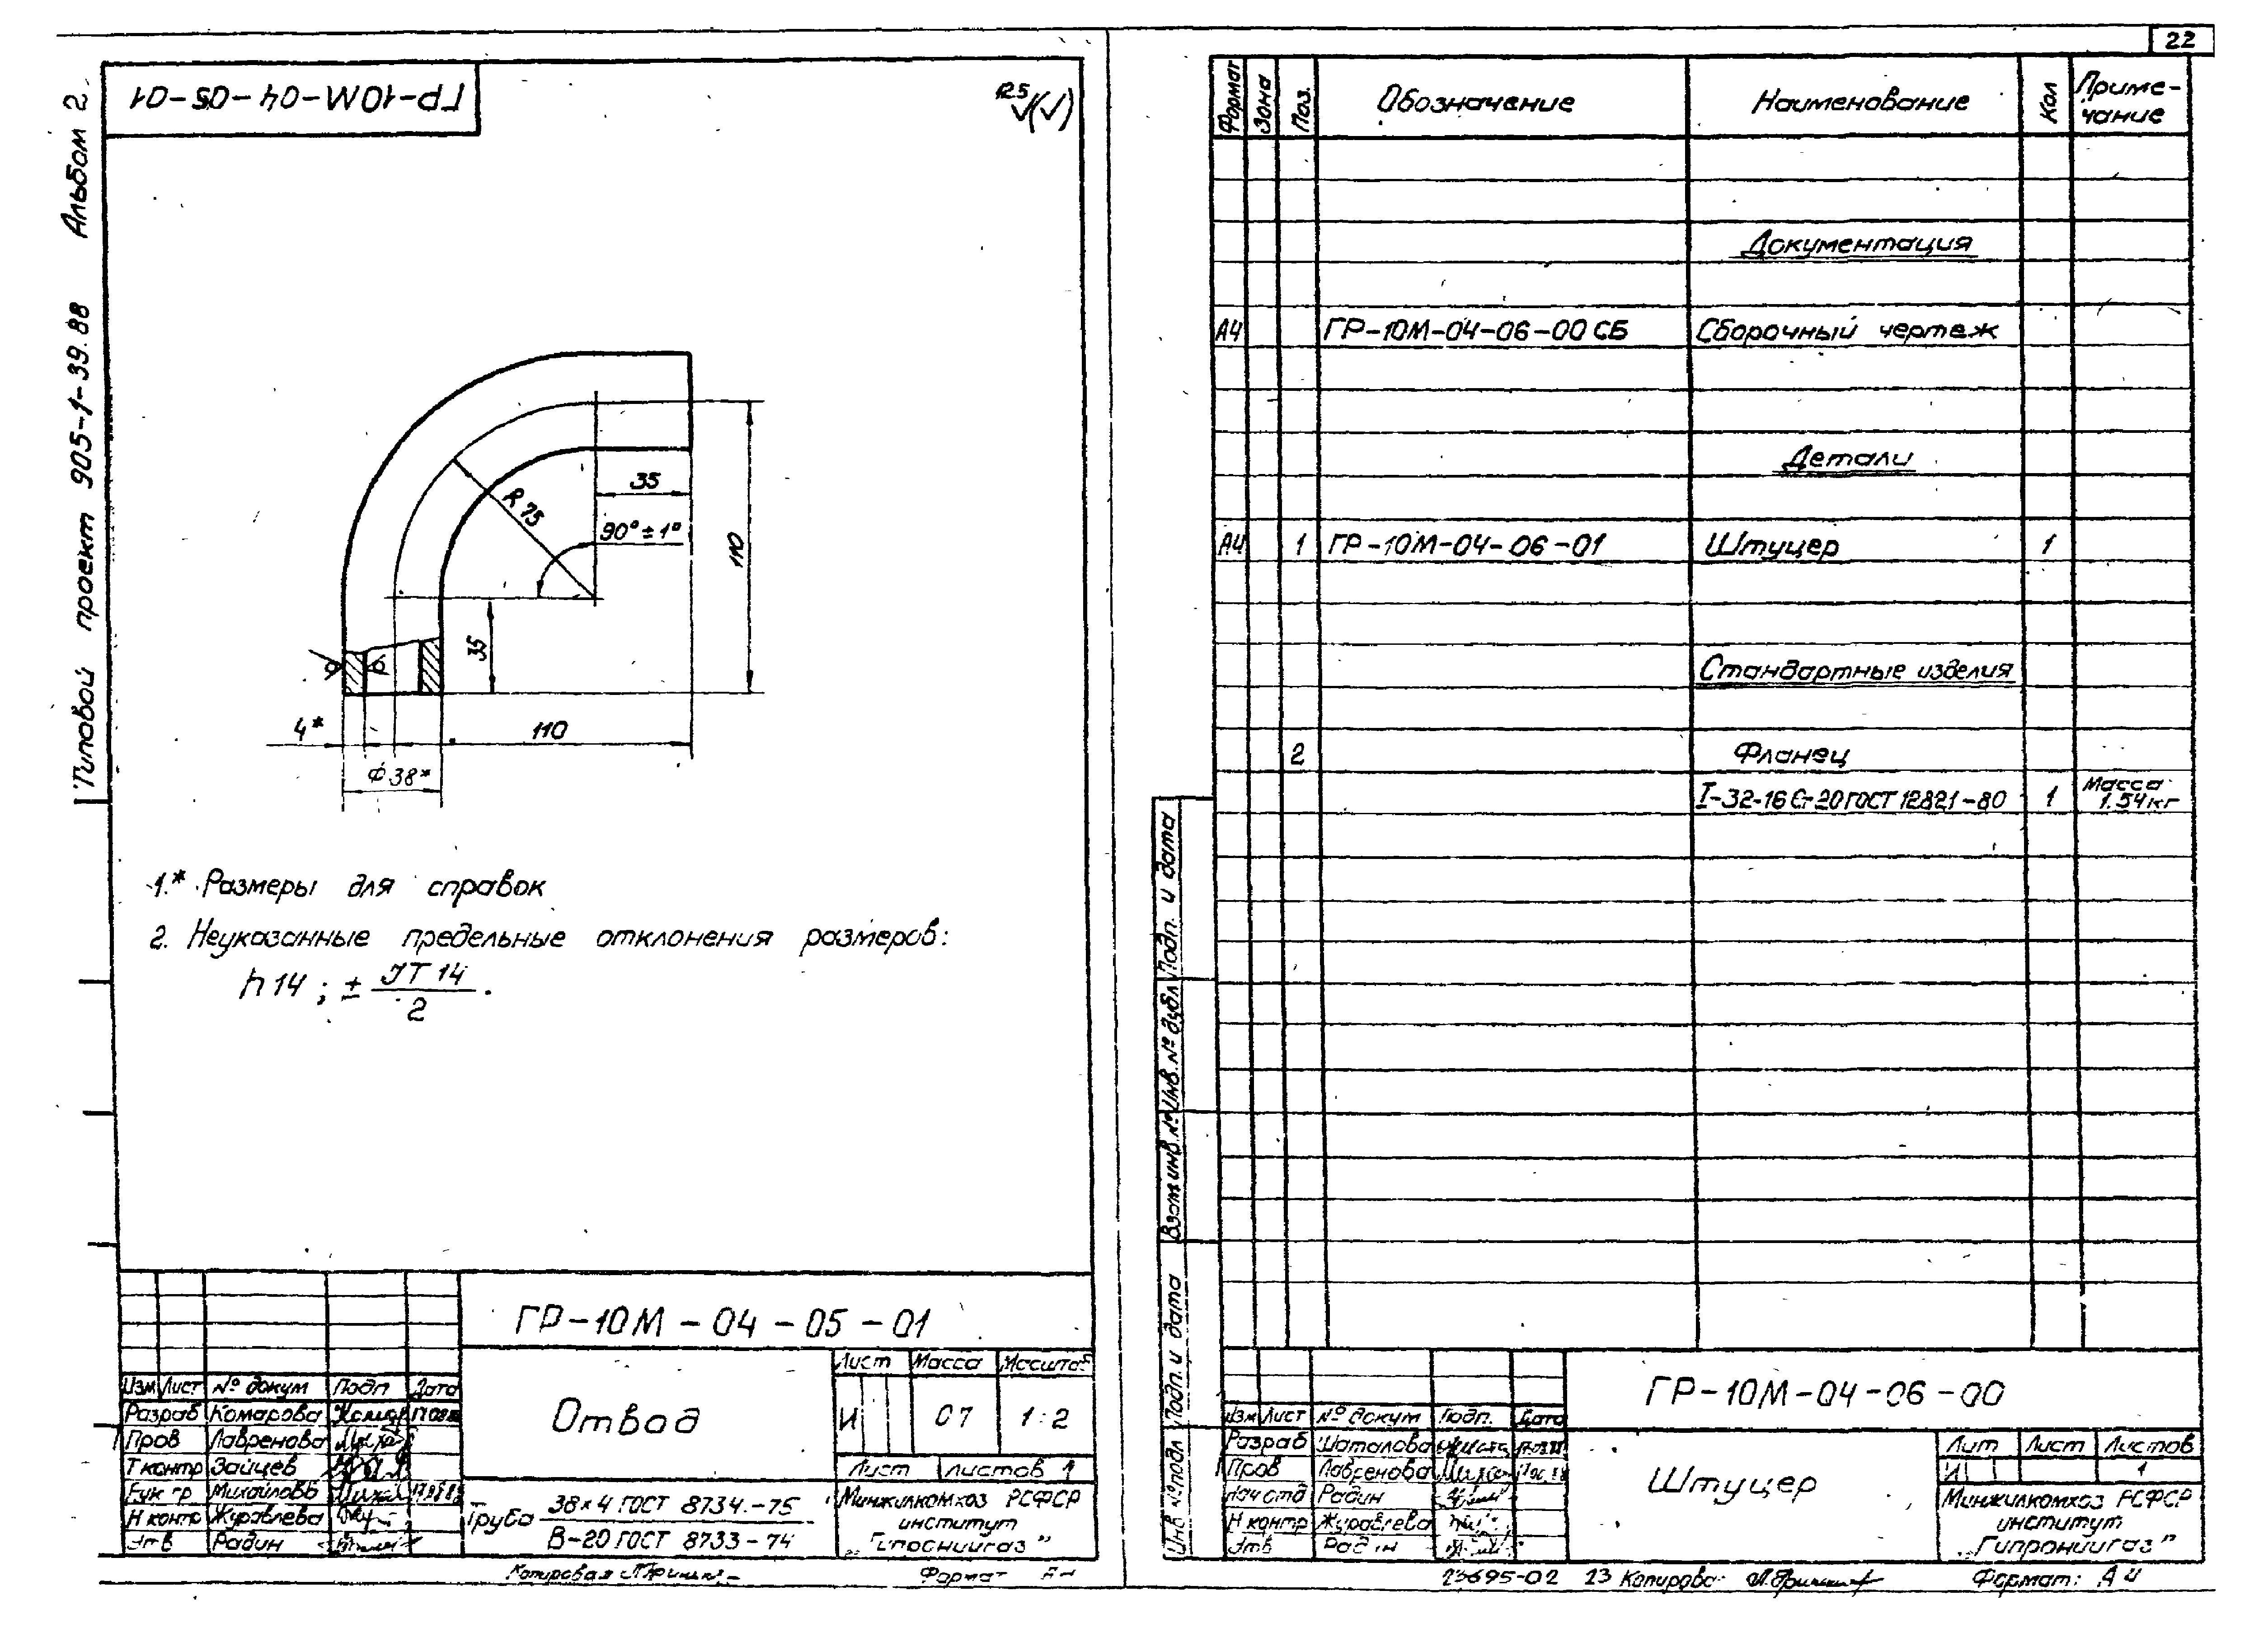 22
Типовой проект 905-1-39.88 Альбом 2.
ГР-10М-04-05-01
12.5 √(√)
35
R 75
90°±1°
110
35
4*
110
Ф38*
1.* Размеры для справок
2. Неуказанные предельные отклонения размеров:
h14; ± JT 14
2 .
ГР-10М-04-05-01
Лист Масса Масштаб
Изм Лист № докум Подп Дата
Разраб Комарова
Пров Лавренова
Т контр Зайцев
Рук гр Михайлова
Н контр Журавлева
Утв Радин
Отвод
И 0 7 1:2
Лист Листов 1
Труба 38×4 ГОСТ 8734.-75
В-20 ГОСТ 8733-74
Минжилкомхоз РСФСР
институт
„Гипрониигаз”
Копировал
Формат
Формат Зона Поз. Обозначение Наименование Кол Приме-
чание
Документация
А4 ГР-10М-04-06-00 СБ Сборочный чертеж
Детали
А4 1 ГР-10М-04-06-01 Штуцер 1
Стандартные изделия
2 Фланец
I-32-16 Ст 20 ГОСТ 12821-80 1 Масса
1.54кг
Инв № подл Подп. и дата Взам инв. № Инв. № дубл Подп. и дата
ГР-10М-04-06-00
Изм Лист № докум Подп. Дата
Разраб Шаталова
Пров Лавренова
Нач отд Радин
Н контр Журавлева
Утв Радин
Штуцер
Лит Лист Листов
И 1
Минжилкомхоз РСФСР
институт
„Гипрониигаз”
23695-02 23 Копировал
Формат: А4